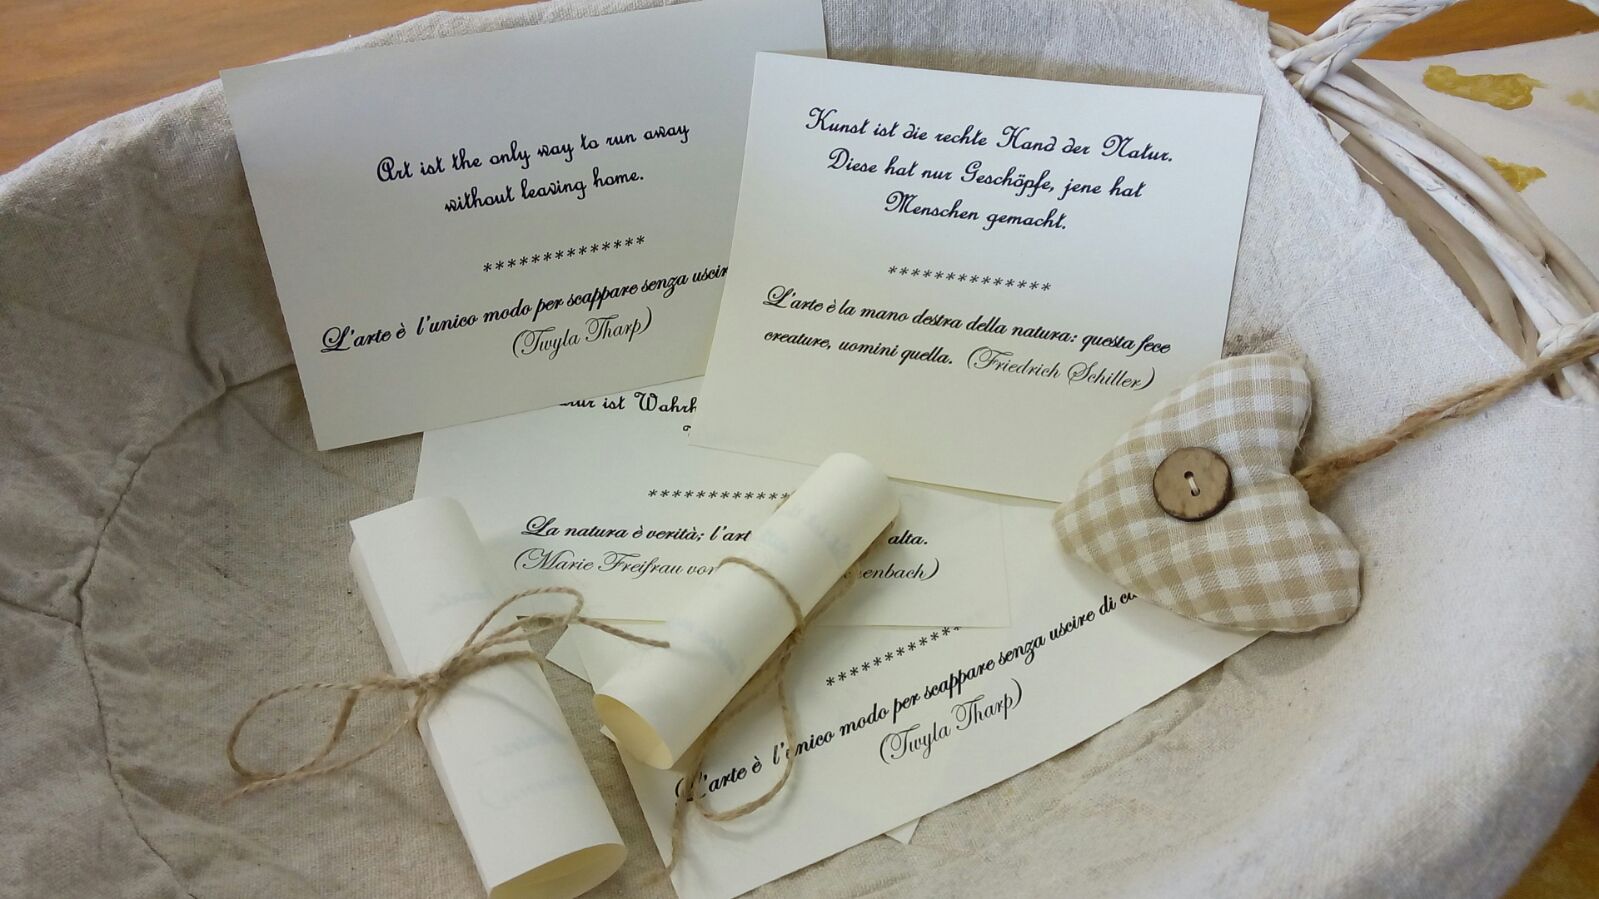 Art ist the only way to run away
without leaving home.
**************
L'arte è l'unico modo per scappare senza
(Twyla Tharp)
Kunst ist die rechte Hand der Natur.
Diese hat nur Geschöpfe, jene hat
Menschen gemacht.
**************
L'arte è la mano destra della natura: questa fece
creature, uomini quella. (Friedrich Schiller)
ist
************
La natura è verità; l'art alta.
(Marie Freifrau von enbach)
************
L'arte è l'unico modo per scappare senza uscire di
(Twyla Tharp)